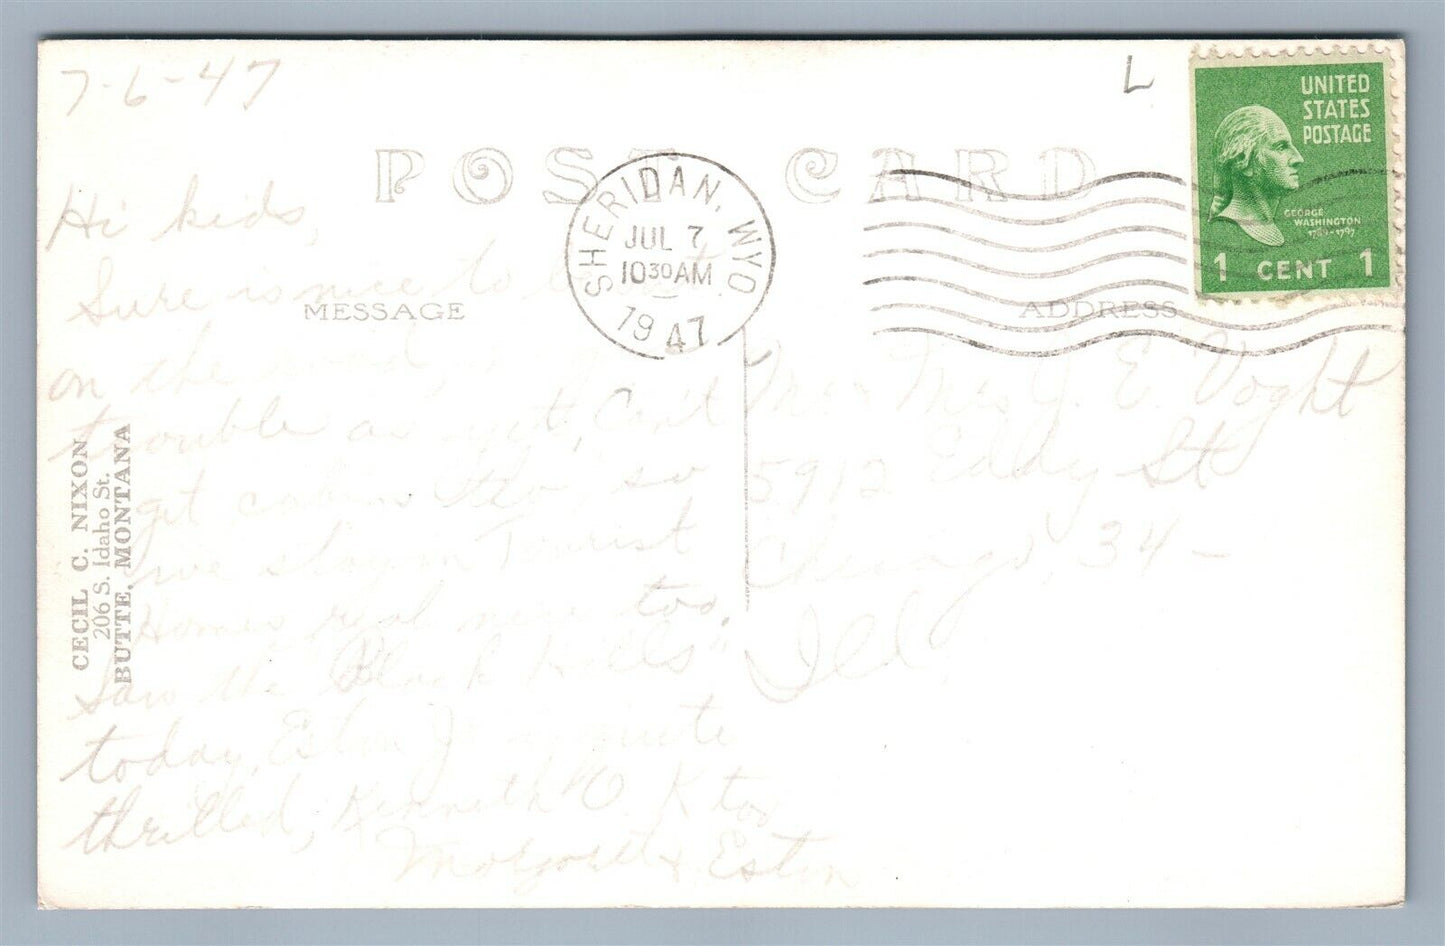 7-6-47
L
UNITED
STATES
POSTAGE
GEORGE
WASHINGTON
1789-1797
1 CENT 1
POST CARD
SHERIDAN, WYO.
JUL 7
10 30 AM
1947
MESSAGE
ADDRESS
Hi kids,
Sure is nice to be
on the road,
trouble as yet, Can't
get cabins tho, so
we stay in Tourist
Homes real nice too,
Saw the "Black Hills"
today, Eston Jr is quite
thrilled, Kenneth O. K too
Margaret & Eston
Mr & Mrs J. E. Voght
5912 Eddy St
Chicago, 34 -
Ill.
CECIL C. NIXON
206 S. Idaho St.
BUTTE, MONTANA